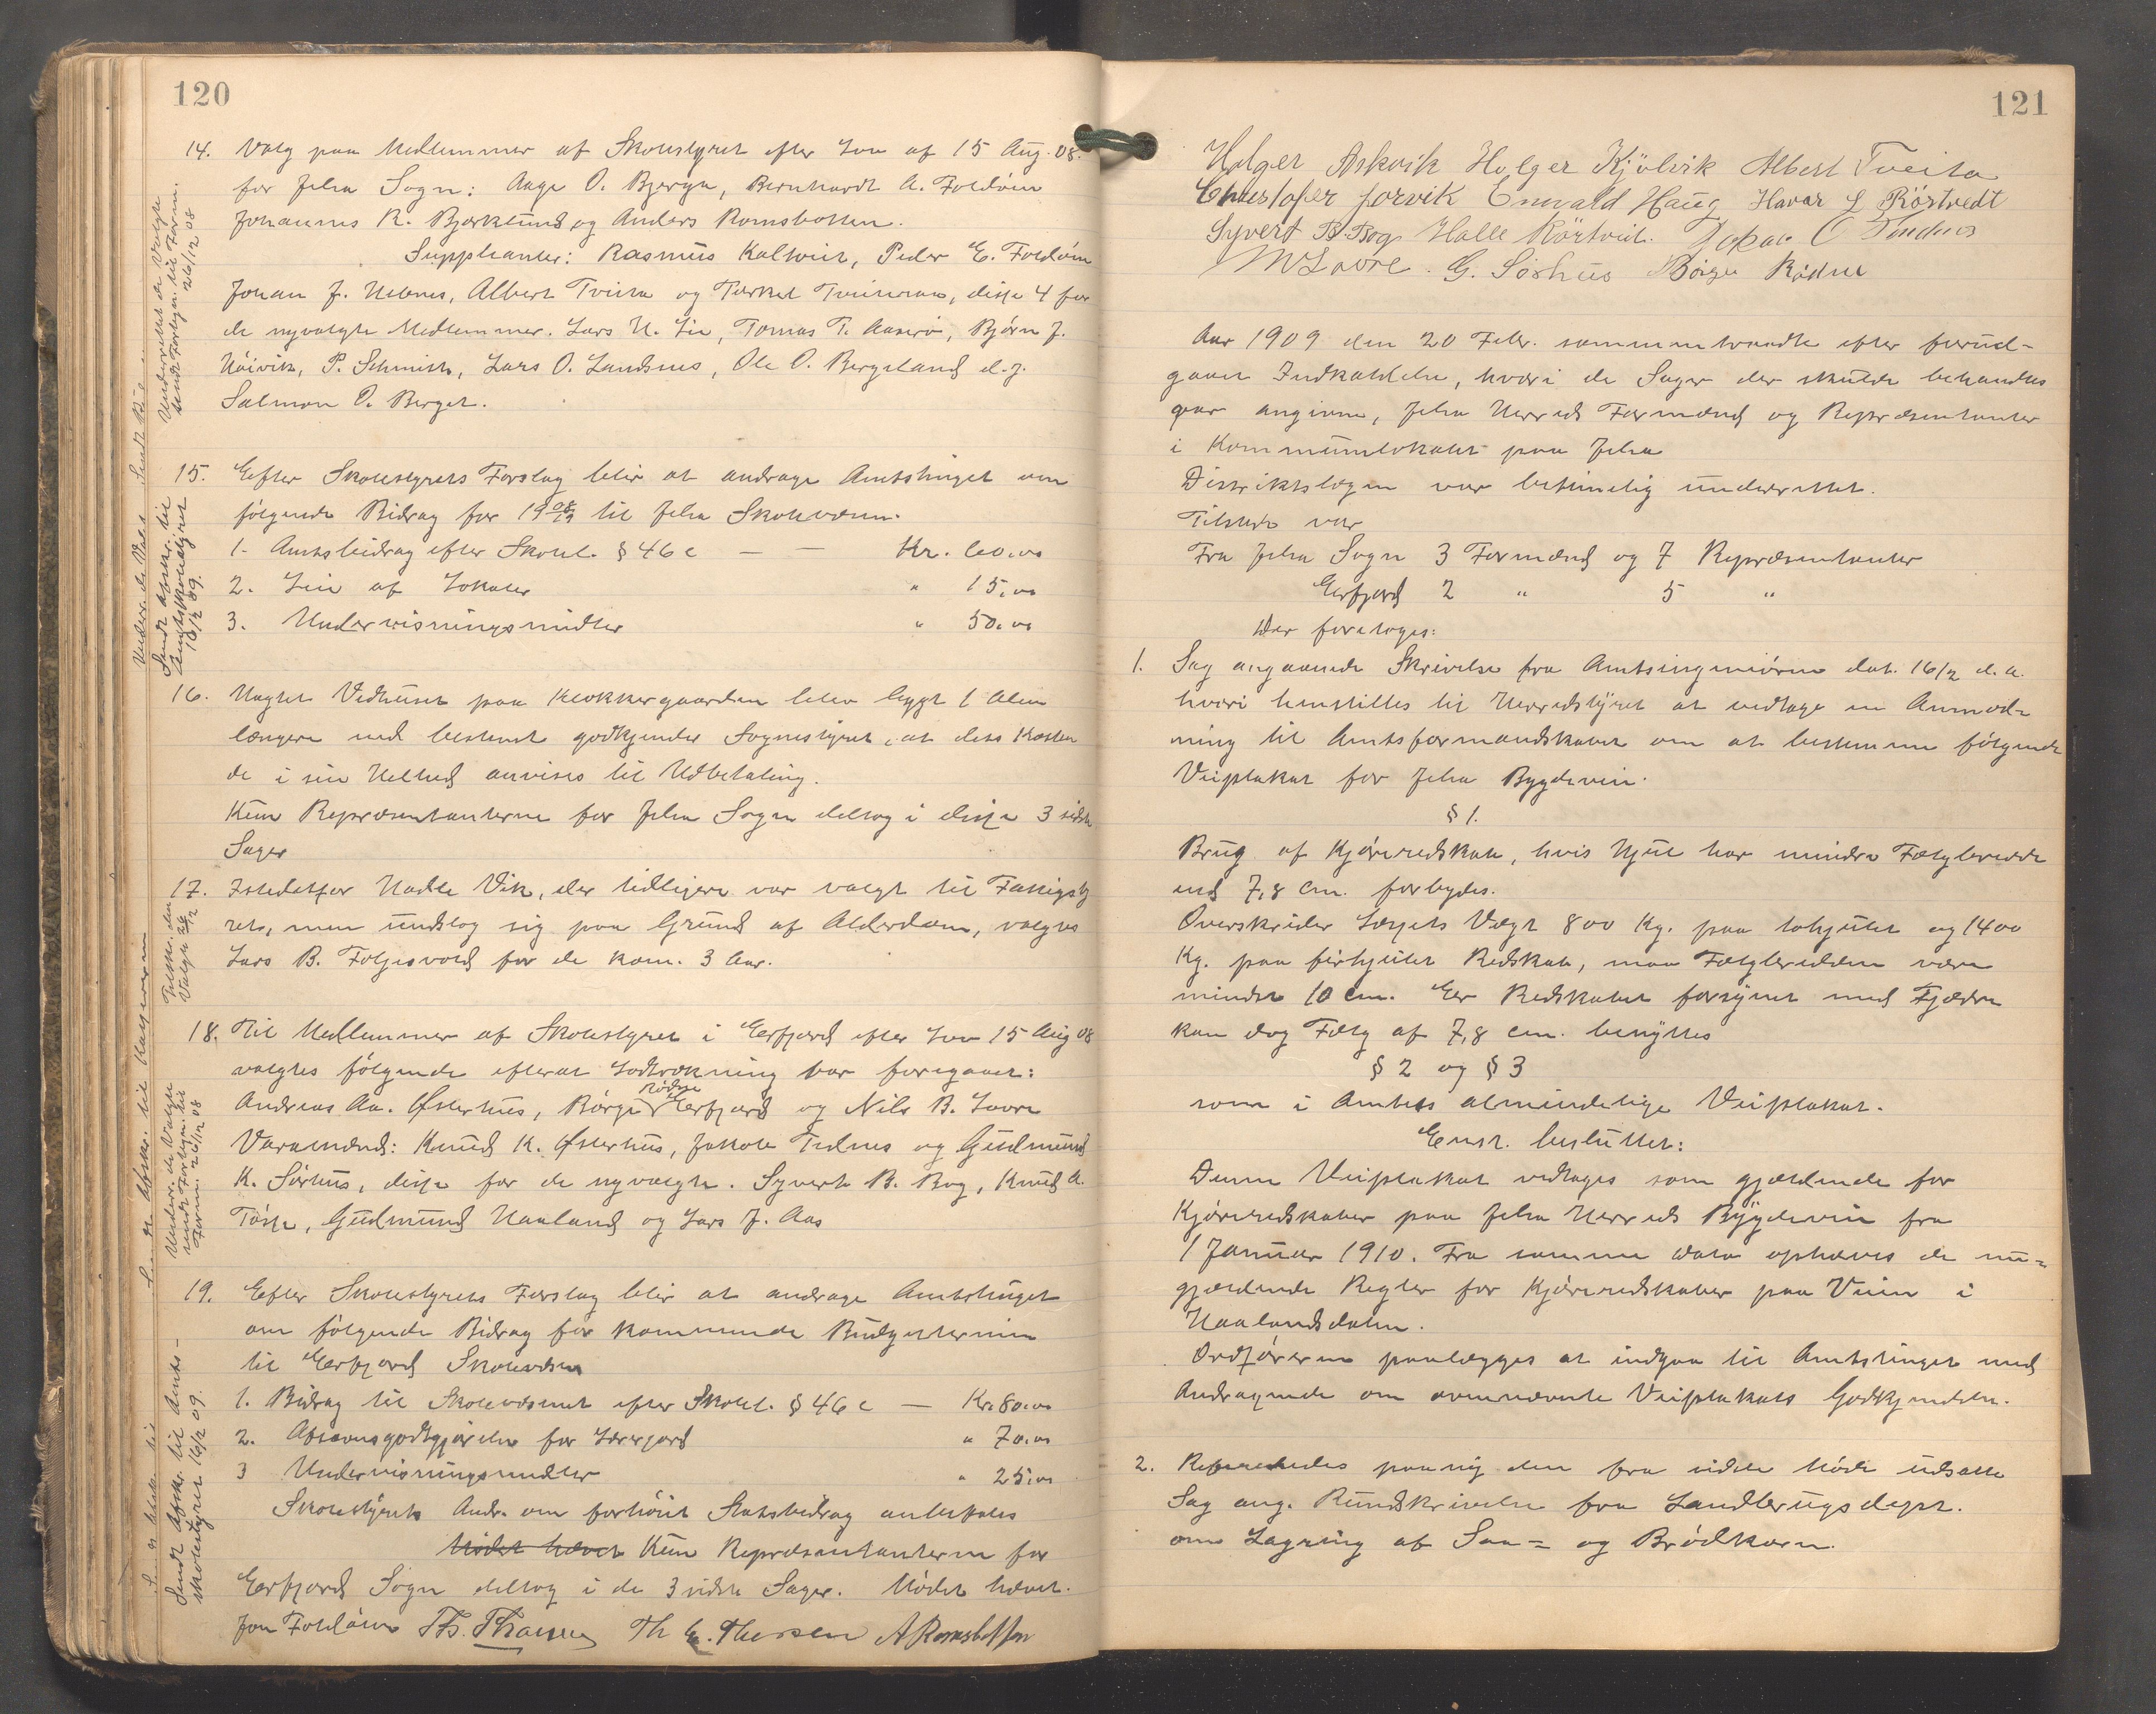 120
14. Valg paa Medlemmer af Skolestyret efter Lov af 15 Aug. 08.
for Jelsa Sogn: Aage O. Bjerga, Bernhardt A. Foldøen
Johannes R. Bjørklund, og Anders Romsbotten.
Suppleanter: Rasmus Kaltveit, Peder E. Foldøen
Johan J. Hebnes, Albert Tveita og Torkel Tveiteraas, disse 4 for
de nyvalgte Medlemmer. Lars H. Lie, Tomas T. Aaserø, Bjørn J.
Høivik, P. Schmith, Lars O. Landsnes, Ole O. Bergeland d.y.
Salmon O. Berget.
Underrettet de Valgte
sendt Forlegn. til Form.
26/12 08
15. Efter Skolestyrets Forslag blir at andrage Amtstinget om
følgende Bidrag for 1908/09 til Jelsa Skolevæsen.
1. Amtsbidrag efter Skolel. § 46 c — — Kr. 600.00
2. Leie af Lokaler " 15.00
3. Undervisningsmidler " 50.00
Sendt Afskr. til
Amtsskolestyret
16/2 09.
16. Uagtet Vedhuset paa Klokkergaarden blev bygt 1 Alen
længere end bestemt godkjender Sognestyret, at dets Kosten
de i sin Helhed anvises til Udbetaling.
Kun Repræsentanterne for Jelsa Sogn deltog i disse 3 sidste
Sager
17. Istedetfor Nadle Vik, der tidligere var valgt til Fattigsty
rets, men undslog sig paa Grund af Alderdom, valgtes
Lars B. Foljesvold for de kom. 3 Aar.
18. Til Medlemmer af Skolestyret i Erfjord efter Lov 15 Aug 08
valgtes følgende efterat Lodtrækning var foregaaet:
Andreas Aa. Østerhus, Børge Rødne Erfjord og Nils B. Lovra
Varamænd: Knud K. Østerhus, Jakob Tednes og Gudmund
K. Sørhus, disse for de nyvalgte. Syvert B. Bog, Knud A.
Tøsse, Gudmund Haaland og Lars J. Aas
Underr. de Valgte
sendt Forlegn. til
Form. 26/12 08
19. Efter Skolestyrets Forslag blir at andrage Amtstinget
om følgende Bidrag for kommende Budgettermin
til Erfjord Skolevæsen
1. Bidrag til Skolevæsenet efter Skolel. § 46 c — Kr. 80.00
2. Afsavnsgodtgjørelse for Lærerjord " 70.00
3 Undervisningsmidler " 25.00
Skolestyrets Andr. om forhøiet Statsbidrag anbefales
Mødet hævet Kun Repræsentanterne for
Erfjord Sogn deltog i de 3 sidste Sager. Mødet hævet.
Sendt Afskr. til Amts-
skolestyret 16/2 09.
Jon Foldøen Ths. Thorsen Th E. Thorsen A Romsbotten
121
Holger Askvik Holger Kjølvik Albert Tveita
Christofer Jorvik Enevald Haug Havar L Rörtvedt
Syvert B. Bog Halle Rörtveit. Jakob O Tednes
N B Lovre. G. Sørhus Børge Rødne
Aar 1909 den 20 Febr. sammentraadte efter forud-
gaaet Indkaldelse, hvori de Sager der skulde behandles
var angivne, Jelsa Herreds Formænd og Repræsentanter
i Kommunelokalet paa Jelsa
Distriktslægen var betimelig underrettet.
Tilstede var
Fra Jelsa Sogn 3 Formænd og 7 Repræsentanter
Erfjord 2 " 5 "
Der foretoges:
1. Sag angaaende Skrivelse fra Amtsingeniøren dat. 16/2 d.a.
hvori henstilles til Herredstyret at vedtage en Anmod-
ning til Amtsformandskabet om at bestemme følgende
Veiplakat for Jelsa Bygdeveie.
§ 1.
Brug af Kjøreredskab, hvis Hjul har mindre Fælgbredde
end 7,8 cm. forbydes.
Overskrider Læssets Vægt 800 Kg. paa tohjulet og 1400
Kg. paa firhjulet Redskab, maa Fælgbredden være
mindst 10 cm. Er Redskabet forsynet med Fjædre
kan dog Fælg af 7,8 cm. benyttes
§ 2 og § 3
som i Amtets almindelige Veiplakat.
Enst. besluttet:
Denne Veiplakat vedtages som gjældende for
Kjøreredskaber paa Jelsa Herreds Bygdeveie fra
1 Januar 1910. Fra samme Dato ophæves de nu-
gjældende Regler for Kjøreredskaber paa Veien i
Haalandsdalen.
Ordføreren paalægges at indgaa til Amtstinget med
Andragende om ovennævnte Veiplakats Godkjendelse.
2. Refereredes paany den fra sidste Møde udsatte
Sag ang. Rundskrivelse fra Landbrugsdept.
om Lagring af Saa- og Brødkorn.